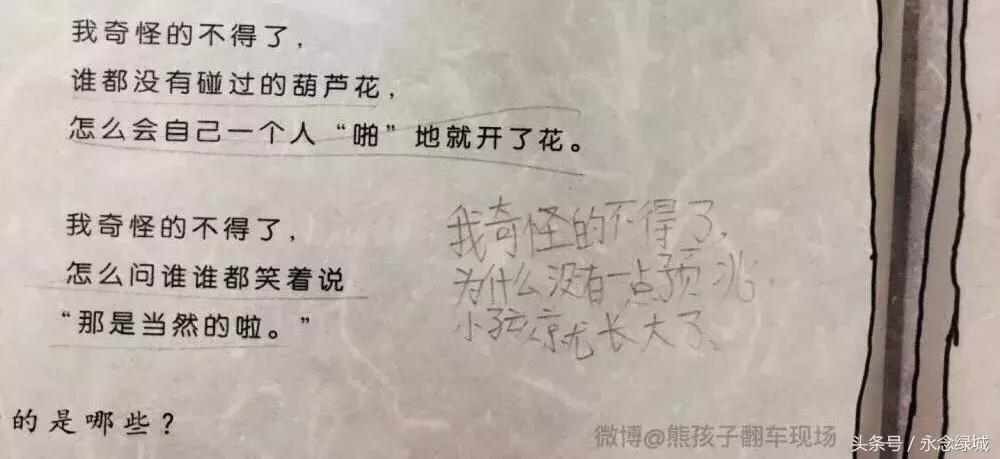 我奇怪的不得了，
谁都没有碰过的葫芦花，
怎么会自己一个人“啪”地就开了花。
我奇怪的不得了，
怎么问谁谁都笑着说
“那是当然的啦。”
我奇怪的不得了，
为什么没有一点预兆，
小孩就长大了。
的是哪些？
微博@熊孩子翻车现场
头条号／永念绿城